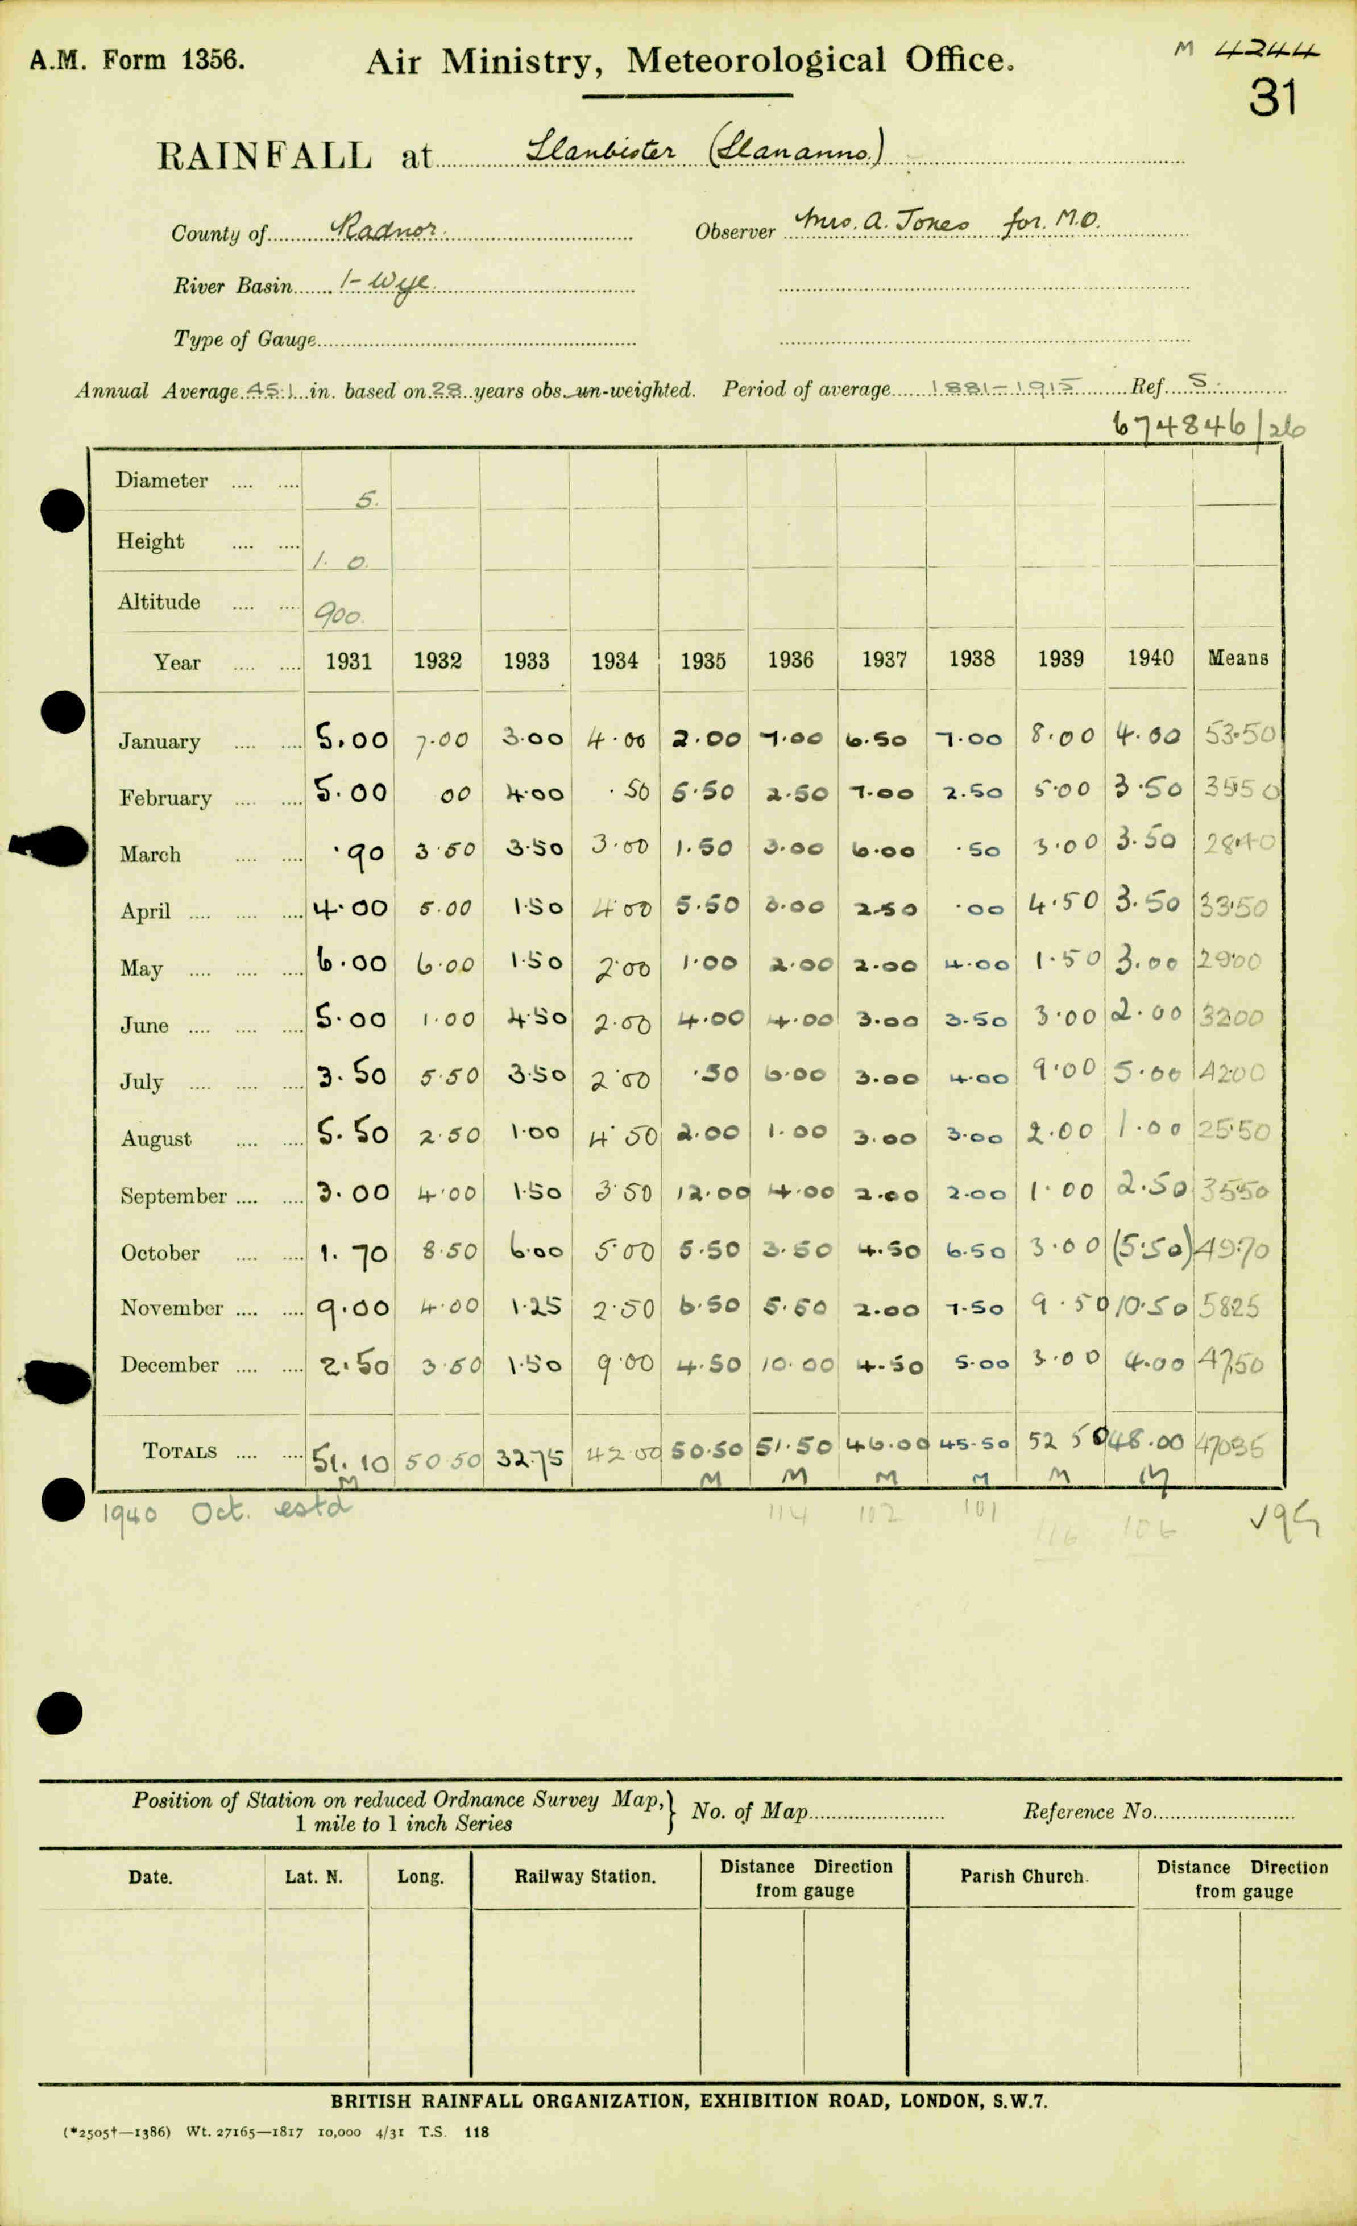 A.M. Form 1356. Air Ministry, Meteorological Office. M 4244
31
RAINFALL at Llanbister (Llananno)
County of Radnor. Observer Mrs. A. Jones for. M.O.
River Basin 1- Wye
Type of Gauge
Annual Average 45.1 in. based on 28 years obs. un-weighted. Period of average 1881-1915 Ref. S.
674846/26
Diameter 5.
Height 1. 0.
Altitude 900.
Year 1931 1932 1933 1934 1935 1936 1937 1938 1939 1940 Means
January 5.00 7.00 3.00 4.00 2.00 7.00 6.50 7.00 8.00 4.00 53.50
February 5.00 00 4.00 .50 5.50 2.50 7.00 2.50 5.00 3.50 35.50
March .90 3.50 3.50 3.00 1.50 3.00 6.00 .50 3.00 3.50 28.40
April 4.00 5.00 1.50 4.00 5.50 3.00 2.50 .00 4.50 3.50 33.50
May 6.00 6.00 1.50 2.00 1.00 2.00 2.00 4.00 1.50 3.00 29.00
June 5.00 1.00 4.50 2.00 4.00 4.00 3.00 3.50 3.00 2.00 32.00
July 3.50 5.50 3.50 2.00 .50 6.00 3.00 4.00 9.00 5.00 42.00
August 5.50 2.50 1.00 4.50 2.00 1.00 3.00 3.00 2.00 1.00 25.50
September 3.00 4.00 1.50 3.50 12.00 4.00 2.00 2.00 1.00 2.50 35.50
October 1.70 8.50 6.00 5.00 5.50 3.50 4.50 6.50 3.00 (5.50) 49.70
November 9.00 4.00 1.25 2.50 6.50 5.50 2.00 7.50 9.50 10.50 58.25
December 2.50 3.50 1.50 9.00 4.50 10.00 4.50 5.00 3.00 4.00 47.50
TOTALS 51.10 50.50 32.75 42.00 50.50 51.50 46.00 45.50 52 50 48.00 47035
M M M M M M M
1940 Oct. estd 114 102 101 116 106
Position of Station on reduced Ordnance Survey Map,} No. of Map Reference No.
1 mile to 1 inch Series
Date. Lat. N. Long. Railway Station. Distance Direction from gauge Parish Church. Distance Direction from gauge
BRITISH RAINFALL ORGANIZATION, EXHIBITION ROAD, LONDON, S.W.7.
(*2505†—1386) Wt. 27165—1817 10,000 4/31 T.S. 118